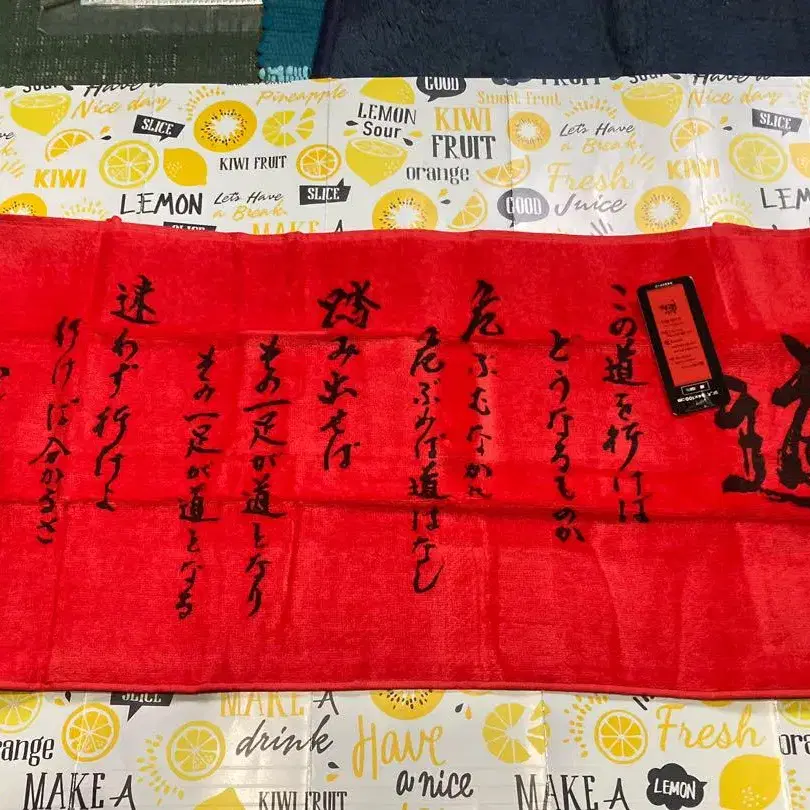 Sour
Have a
Nice day
Pineapple
GOOD
Sweet Fruit
FRUIT
Sour
Have a
Nice day
SLICE
LEMON
Sour
KIWI
FRUIT
Let's Have
a Break
SLICE
KIWI
KIWI FRUIT
orange
Fresh
Juice
LEMON
Let's Have
a Break
SLICE
GOOD
LEM
MAKE A
道
この道を行けば
どうなるものか
危ぶむなかれ
危ぶめば道はなし
踏み出せば
その一足が道となり
その一足が道となる
迷わず行けよ
行けば分かるさ
SLICE
MAKE A
drink
Have
a nice
Fresh
orange
MAKE A
KIWI FRUIT
MAKE A
LEMON